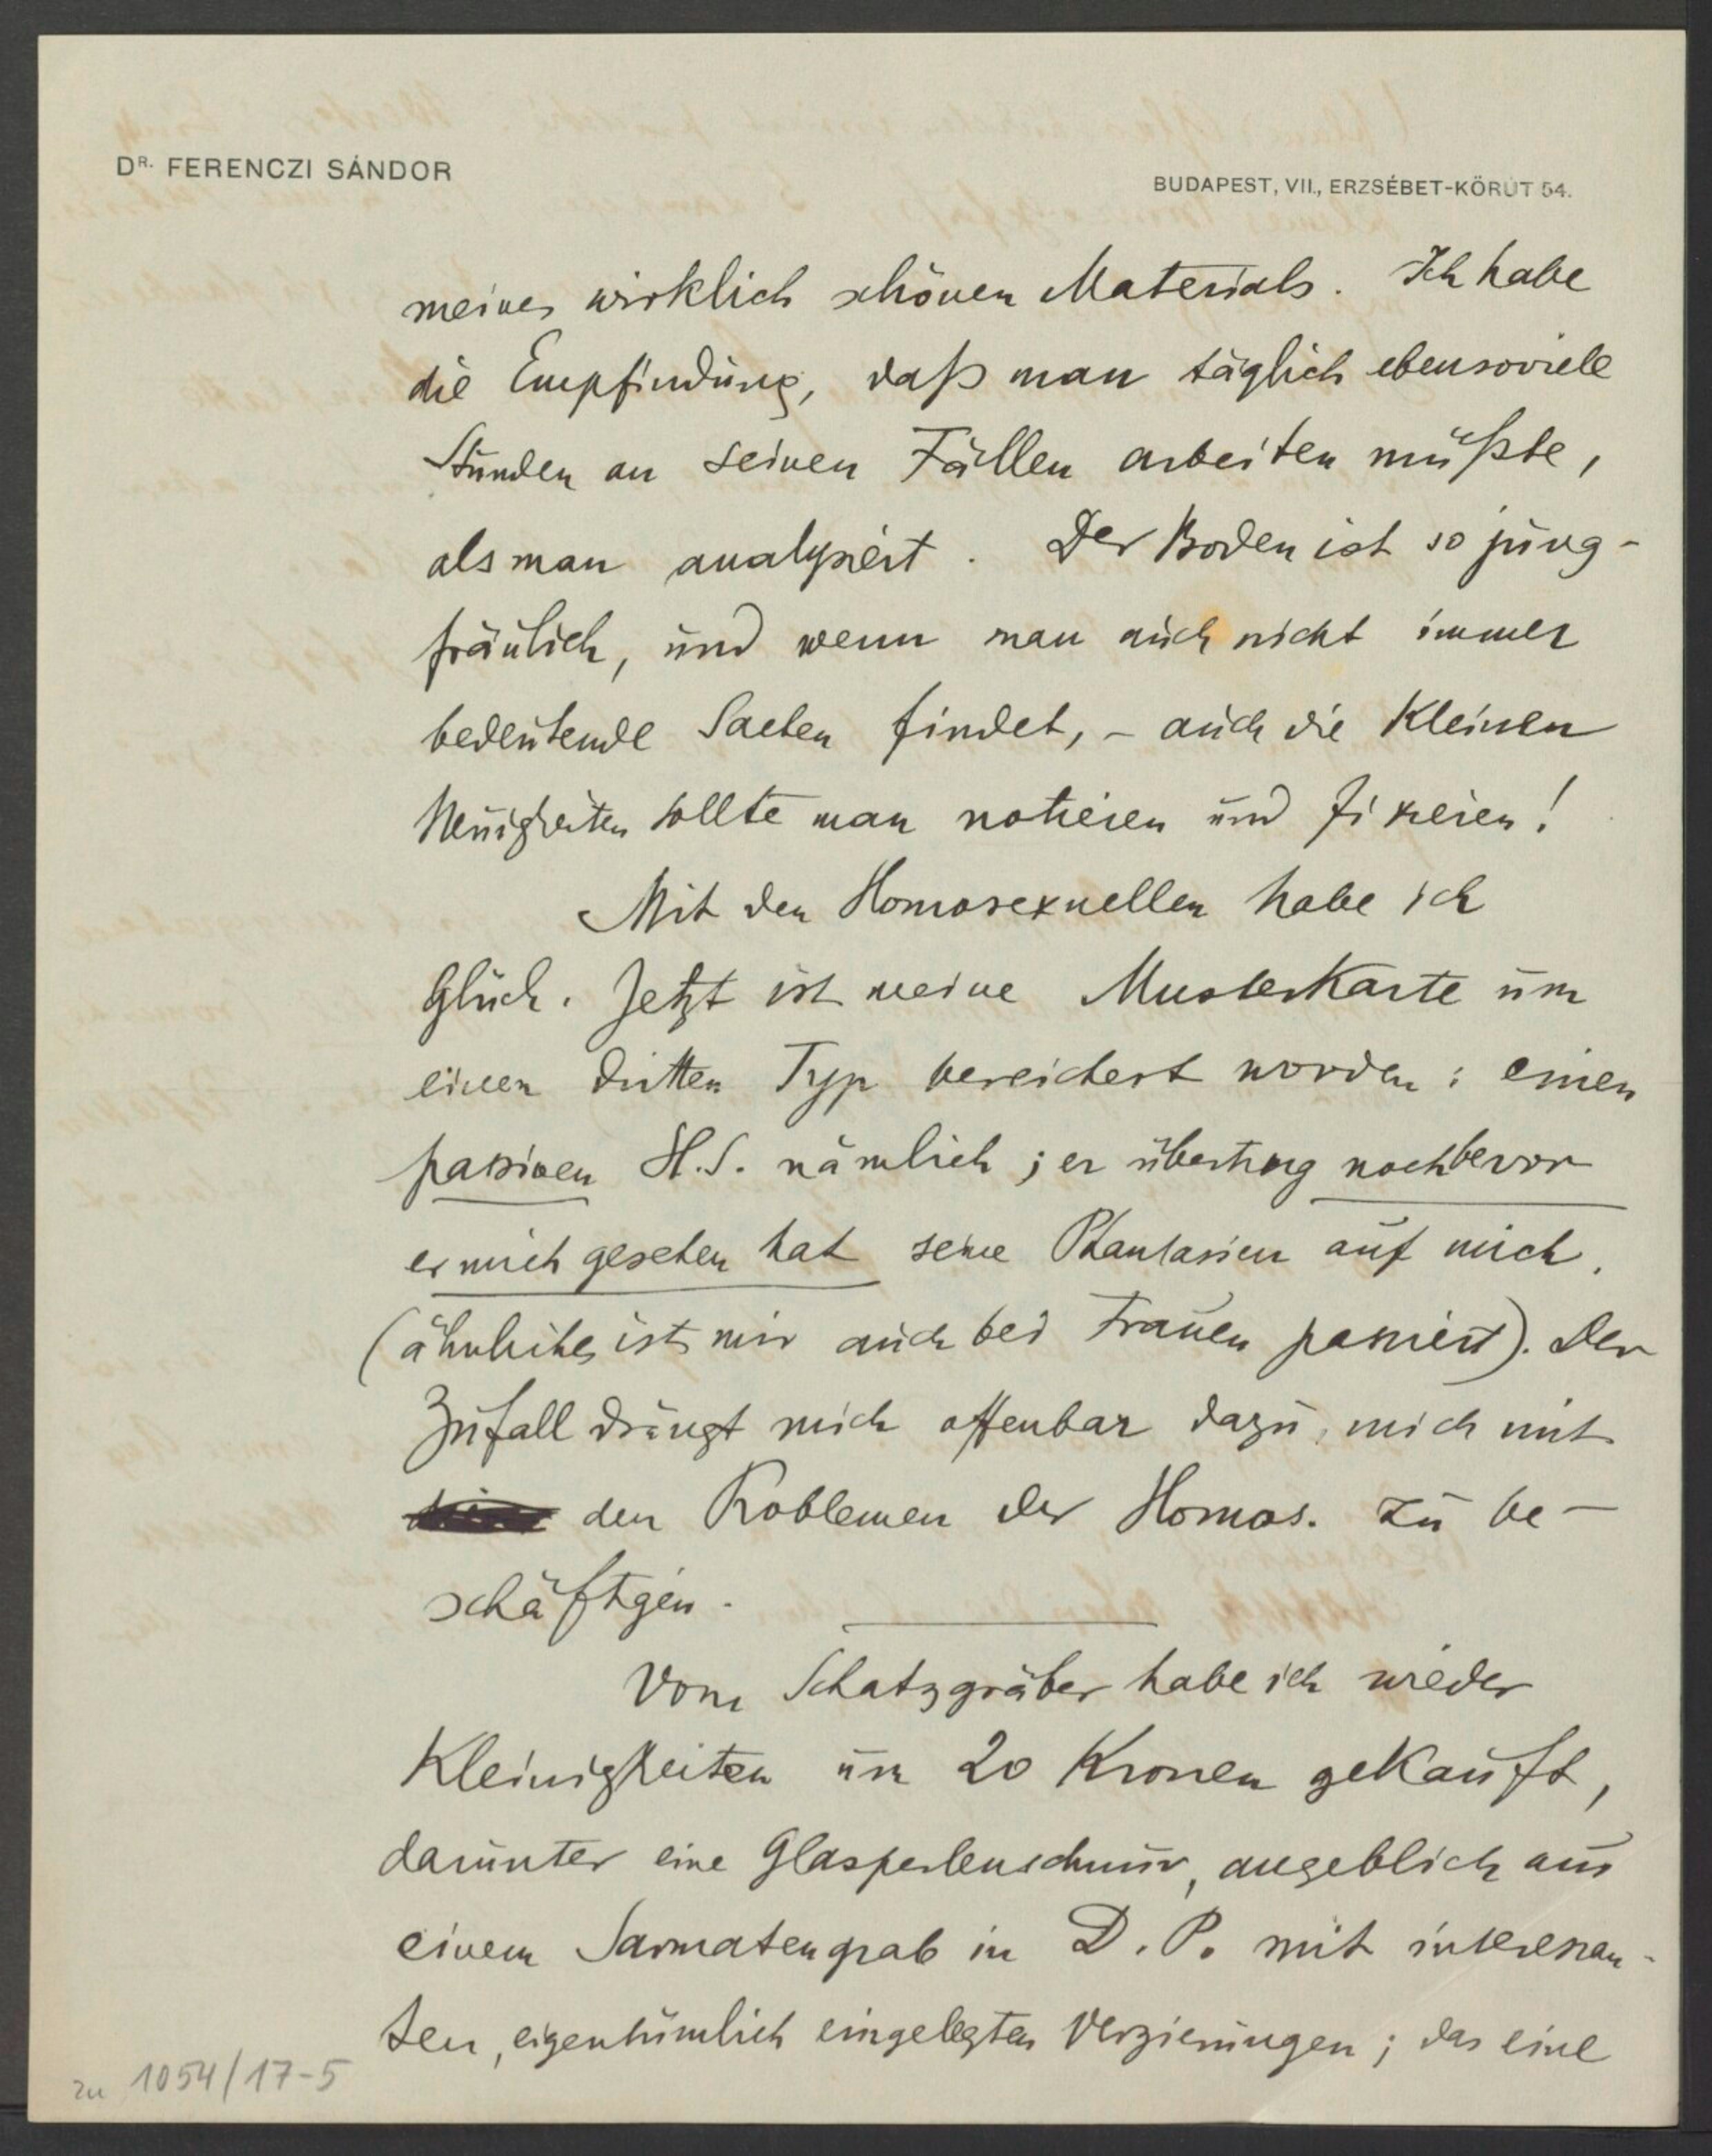 DR. FERENCZI SÁNDOR
BUDAPEST, VII., ERZSÉBET-KÖRÚT 54.
meines wirklich schönen Materials. Ich habe
die Empfindung, daß man täglich ebensoviele
Stunden an seinen Fällen arbeiten müßte,
als man analysiert. Der Boden ist so jung-
fräulich, und wenn man auch nicht immer
bedeutende Sachen findet, – auch die Kleinen
Neuigkeiten sollte man notieren und fixieren!
Mit den Homosexuellen habe ich
Glück. Jetzt ist meine Musterkarte um
einen dritten Typ bereichert worden: einen
passiven H.S. nämlich; er übertrug noch bevor
er mich gesehen hat seine Phantasien auf mich.
(ähnliches ist mir auch bei Frauen passiert). Der
Zufall drängt mich offenbar dazu, mich mit
den Problemen der Homos. zu be-
schäftgen.
Vom Schatzgräber habe ich wieder
Kleinigkeiten um 20 Kronen gekauft,
darunter eine Glasperlenschnur, angeblich aus
einem Sarmatengrab in D. P. mit interessan-
ten, eigentümlich eingelegten Verzierungen; das eine
zu 1054/17-5